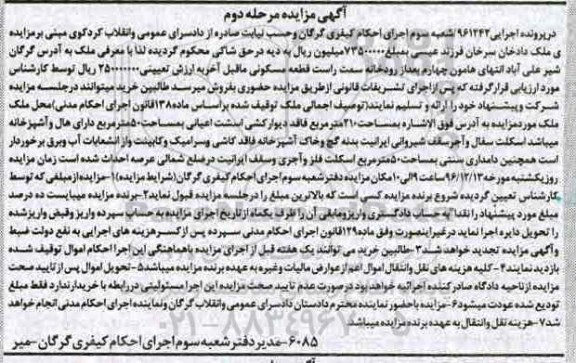 آگهی مزایده مرحله دوم
درپرونده اجرایی ۹۶۱۲۴۲ شعبه سوم اجرای احکام کیفری گرگان وحسب نیابت صادره از دادسرای عمومی وانقلاب کردکوی مبنی برمزایده
ی ملک دادخان سرخان فرزند عیسی بمبلغ ۷۳۵۰۰۰۰۰ میلیون ریال به دیه درحق شاکی محکوم گردیده لذا با معرفی ملک به آدرس گرگان
شیر علی آباد انتهای هامون چهارم بعداز رودخانه سمت راست قطعه مسکونی ماقبل آخر به ارزش تعیینی ۲۵۰۰۰۰۰۰۰ ریال توسط کارشناس
مورد ارزیابی قرارگرفته که پس ازاجرای تشریفات قانونی ازطریق مزایده حضوری بفروش میرسد طالبین خرید میتوانند درجلسه مزایده
شرکت وپیشنهاد خود را ارائه و تسلیم نمایند (توصیف اجمالی ملک توقیف شده براساس ماده ۱۳۸ قانون اجرای احکام مدنی) محل ملک
ملک موردمزایده به آدرس فوق الاشاره بمساحت ۲۱۰ مترمربع فاقد دیوارکشی است اعیانی بمساحت ۵۰ مترمربع دارای هال و آشپزخانه
میباشد اسکلت سفال وآجرسقف شیروانی ایرانیت بدنه گچ وخاک آشپزخانه فاقد کاشی وسرامیک وکابینت واز انشعابات آب وبرق برخوردار
است همچنین دامداری سنتی بمساحت ۵۰ مترمربع اسکلت فلز وآجری وسقف ایرانیت درضلع شمالی عرصه احداث شده است زمان مزایده
روزیکشنبه مورخه ۹۶/۱۲/۱۳ ساعت ۹ الی ۱۰ مکان مزایده دفترشعبه سوم اجرای احکام کیفری گرگان (شرایط مزایده) ۱-مزایده ازمبلغی که توسط
کارشناس تعیین گردیده شروع برنده مزایده کسی است که بالاترین مبلغ را درجلسه مزایده قبول نماید ۲-برنده مزایده میبایست ده درصد
مبلغ مورد پیشنهاد را نقدا به حساب دادگستری واریزومابقی آن را ظرف یکماه ازتاریخ اجرای مزایده به حساب سپرده واریز وقبض واریزشده
را تحویل دایره اجرا نماید درغیراینصورت وفق ماده ۱۲۹ قانون اجرای احکام مدنی سپرده پس ازکسرهزینه های اجرایی به نفع دولت ضبط
وآگهی مزایده تجدید خواهد شد ۳-طالبین خرید می توانند یک هفته قبل از اجرای مزایده باهماهنگی این اجرا احکام اموال توقیف شده
بازدید نمایند ۴-کلیه هزینه های نقل وانتقال اموال اعم ازعوارض مالیات وغیره به عهده برنده مزایده میباشد ۵-تحویل اموال پس ازتایید صحت
مزایده ازناحیه دادگاه صادرکننده اجرائیه خواهد بود درصورت عدم تایید صحت مزایده این اجرا مسئولیتی دررابطه با خریدارندارد فقط مبلغ
تودیع شده عودت میشود ۶-مزایده باحضور نماینده محترم دادستان دادسرای عمومی وانقلاب گرگان ونماینده اجرای احکام مدنی انجام خواهد
شد ۷-هزینه نقل وانتقال به عهده برنده مزایده میباشد
۶۰۸۵-مدیر دفتر شعبه سوم اجرای احکام کیفری گرگان-میر
۰۲۱-۸۸۳۴۹۶۷۰-۵